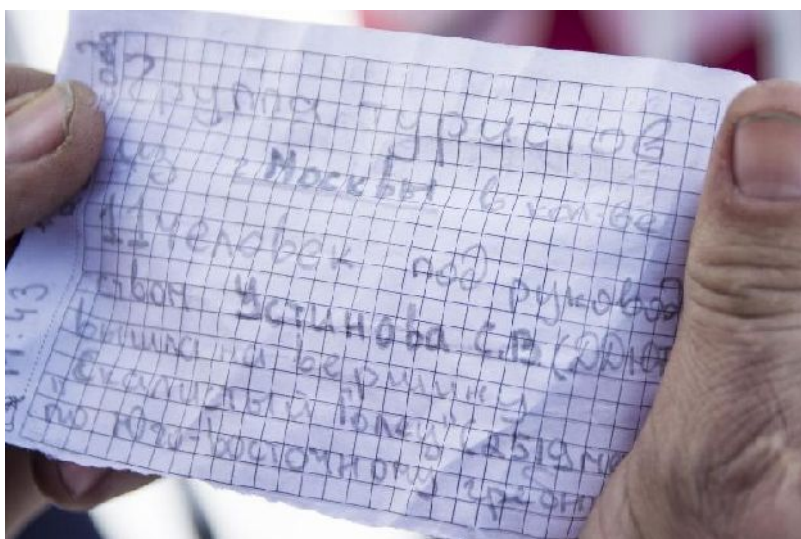 Группа туристов
из г. Москвы в кол-ве
11 человек под руковод
ством Устинова С.В. (
вышла на вершину
"Скалистый Голец" (2519 м
по юго-восточному гребню
11.43